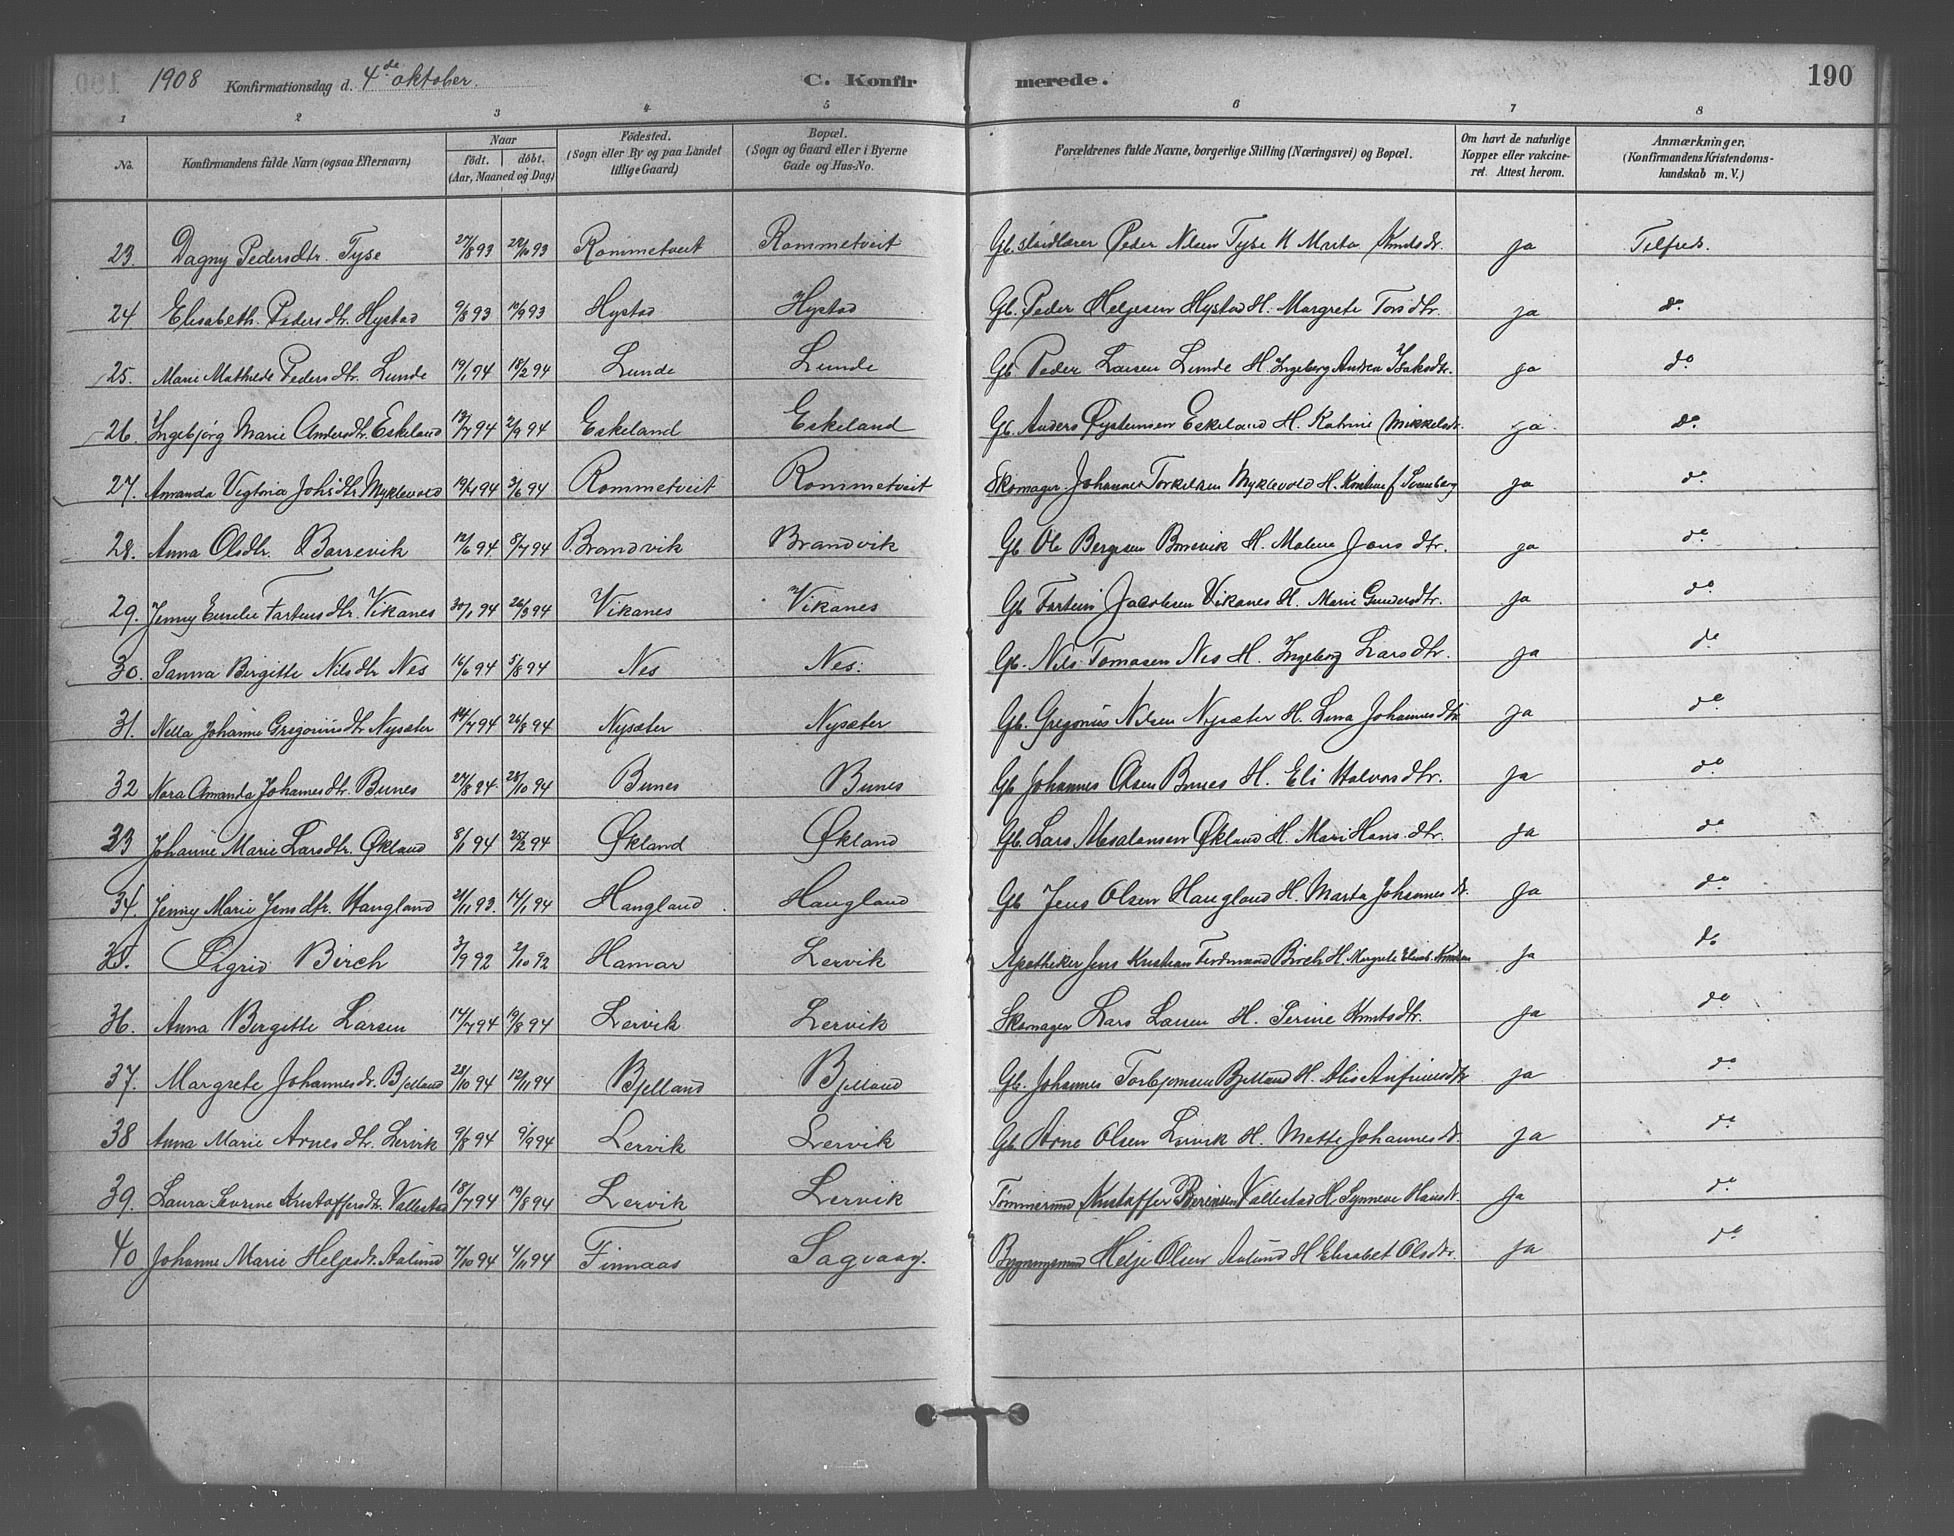 1908 Konfirmationsdag d. 4de oktober. C. Konfirmerede. 190
1 2 3 4 5 6 7 8
No. Konfirmandens fulde Navn (ogsaa Efternavn) Naar født. døbt. (Aar, Maaned og Dag) Fødested. (Sogn eller By og paa Landet tillige Gaard) Bopæl. (Sogn og Gaard eller i Byerne Gade og Hus-No. Forældrenes fulde Navne, borgerlige Stilling (Næringsvei) og Bopæl. Om havt de naturlige Kopper eller vakcineret. Attest herom. Anmærkninger. (Konfirmandens Kristendomskundskab m. V.)
23. Dagny Pedersdtr. Tyse 27/8 93 93 Rommetveit Rommetveit Gb. Peder Nilsen Tyse Marta Knutsdr. ja Tilfreds.
24 Elisabeth Pedersdtr. Hystad 9/8 93 10/9 93 Hystad Hystad Gb. Peder Heljesen Hystad H. Margrete Torsdtr. ja do
25. Marie Mathilde Pedersdtr. Lunde 19/1 94 18/2 94 Lunde Lunde Gb. Peder Larsen Lunde H. Ingeborg Andrea Isaksdtr. ja do
26. Ingebjørg Marie Andersdtr. Eskeland 13/7 94 2/9 94 Eskeland Eskeland Gb. Anders Øysteinsen Eskeland H. Katrine Mikkelsdr. ja do
27. Amanda Vigtoria Johsdtr. Myklevold 19/4 94 3/6 94 Rommetveit Rommetveit Skomager Johannes Torkelsen Myklevold H. Kristine f. Svanberg ja do
28. Anna Olsdtr. Barrevik 12/6 94 8/7 94 Brandvik Brandvik Gb Ole Bergesen H. Malene Jans dtr. ja do
29. Jenny Emelie Fartensdtr. Vikanes 30/1 94 26/3 94 Vikanes Vikanes Gb Fartein Jacobsen Vikanes H. Marie Gundersdtr. ja do
30. Sanna Birgitte Nilsdtr Nes 16/6 94 5/8 94 Nes Nes. Gb. Nils Tomasen Nes H. Ingeborg Larsdtr. ja do
31. Nella Johanne Gregoriusdtr Nysæter 14/7 94 26/8 94 Nysæter Nysæter Gb. Gregorius Nilsen Nysæter H. Lina Johannesdtr ja do
32 Nora Amanda Johannesdtr. Bunes 27/8 94 28/10 94 Bunes Bunes Gb Johannes Olsen Bunes H. Eli Halvorsdtr. ja do
33 Johanne Marie Larsdtr. Økland 8/1 94 25/2 94 Økland Økland Gb. Lars Absalonsen Økland H. Mari Hans dtr. ja do
34. Jenny Marie Jensdtr. Haugland 21/11 93. 14/1 94 Haugland Haugland Gb Jens Olsen Haugland H. Marta Johannesdr. ja do
35. Sigrid Birch 3/9 92 2/10 92 Hamar Lervik Apotheker Jens Kristian Ferdinand Birch H. Margrete Elisab. Knudsen ja do
36. Anna Bergitte Larsen 14/7 94 19/8 94 Lervik Lervik Skomager Lars Larsen H. Serine Knutsdtr. ja do
37. Margrete Johannesdr. Bjelland 28/10 94 12/11 94 Bjelland Bjelland Gb. Johannes Torbjørnsen Bjelland H. Alis Anfinnsdtr ja do
38 Anna Marie Arnesdtr. Lervik 9/8 94 9/9 94 Lervik Lervik Gb. Arne Olsen Lervik H. Mette Johannesdr. ja do
39. Laura Severine Kristoffersdtr. Vallestad 18/7 94 19/8 94 Lervik Lervik Tømmermd Kristoffer Berensen Vallestad H. Synneve Hansdr. ja do
40 Johanne Marie Heljesdr. Aalund 7/10 94 4/11 94 Finnaas Sagvaag. Bygningsmd Helje Olsen Aalund H Elisabet Olsdtr. ja do